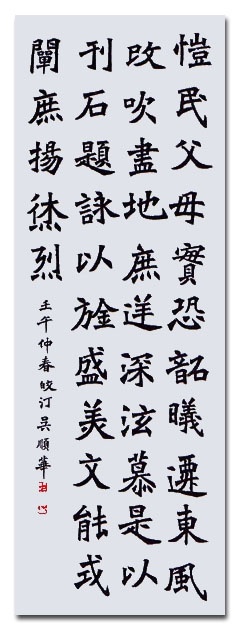 愷民父母實恐韶曦遷東風
改吹盡地庶深泫慕是以
刊石題詠以旌盛美文能或
闡庶揚烋烈
壬午仲春皎汀吳順華